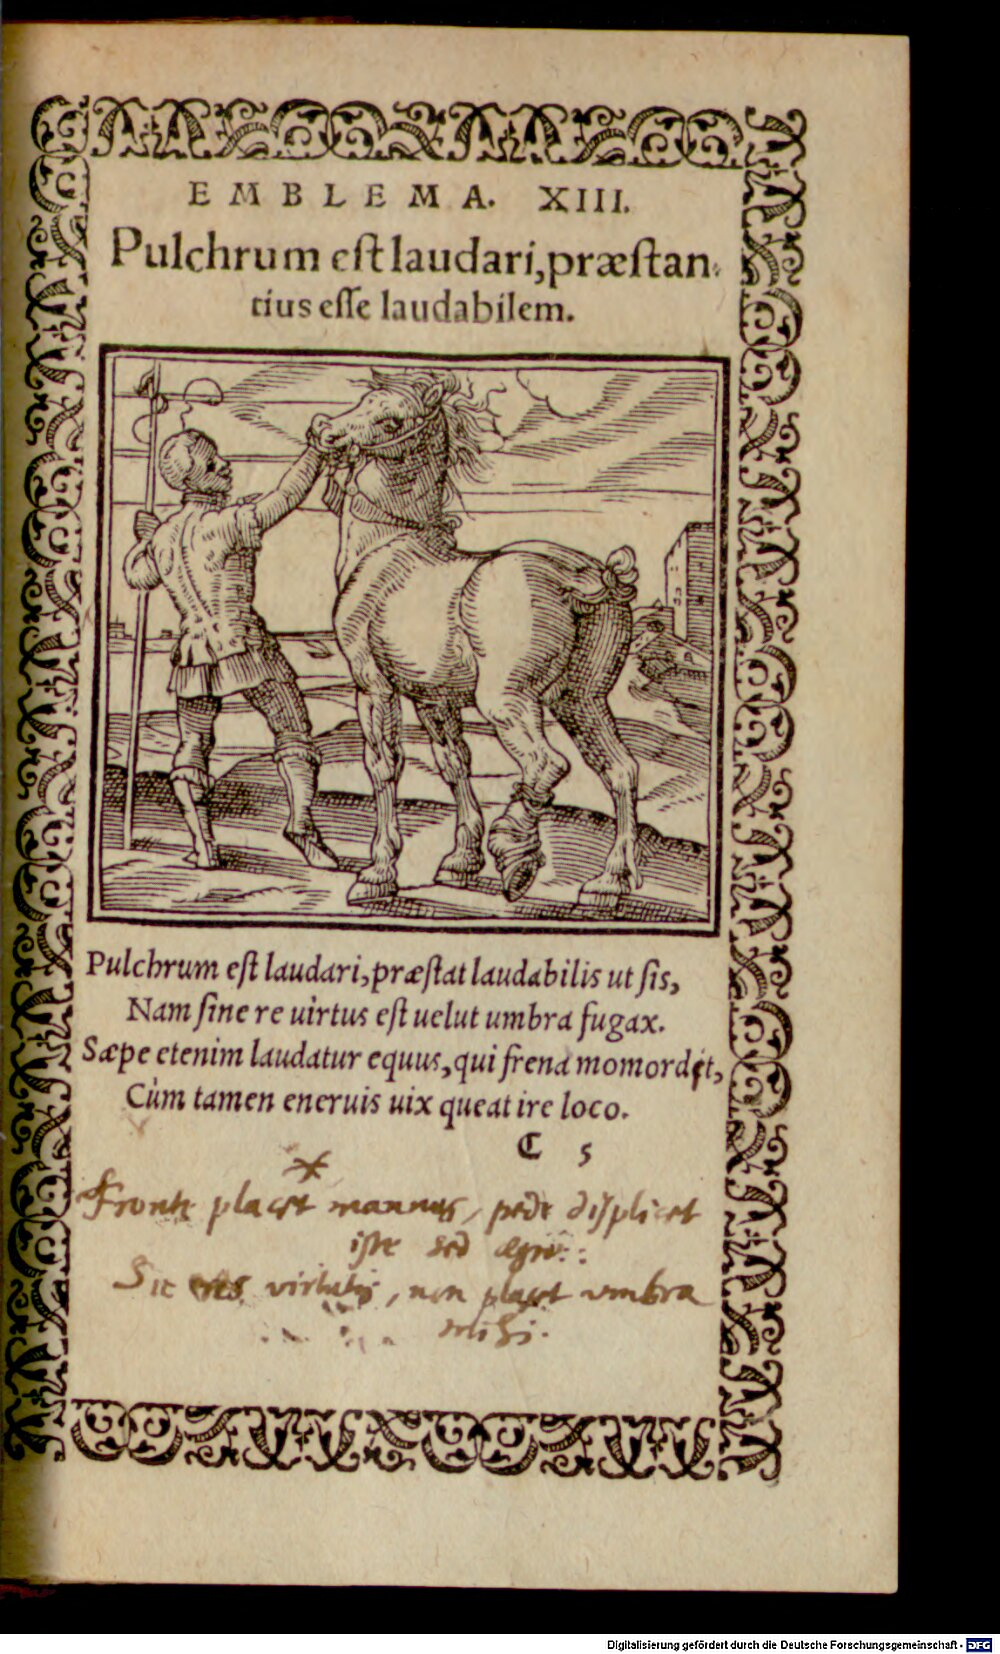 EMBLEMA. XIII.
Pulchrum eſt laudari, præſtan-
tius eſſe laudabilem.
Pulchrum eſt laudari, præſtat laudabilis ut ſis,
Nam ſine re uirtus eſt uelut umbra fugax.
Sæpe etenim laudatur equus, qui frena momordit,
Cùm tamen eneruis uix queat ire loco.
C 5
Fronte placet mannus, pede diſplicet
iſte sed ægro:
Sic res virtutis, non placet vmbra
mihi.
Digitalisierung gefördert durch die Deutsche Forschungsgemeinschaft - DFG